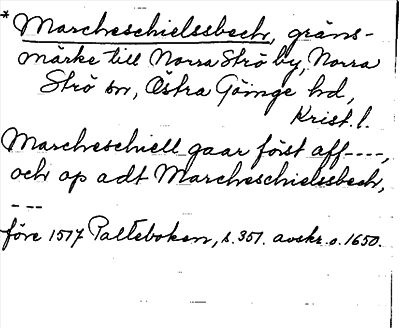 * Marcheschielssbech, gräns-
märke till Norra Strö by, Norra
Strö sn, Östra Göinge hd,
Krist. l.
Marcheschiell gaar först aff----,
och op adt Marcheschielssbech,
---
före 1517 Palteboken, s. 351. avskr. o. 1650.